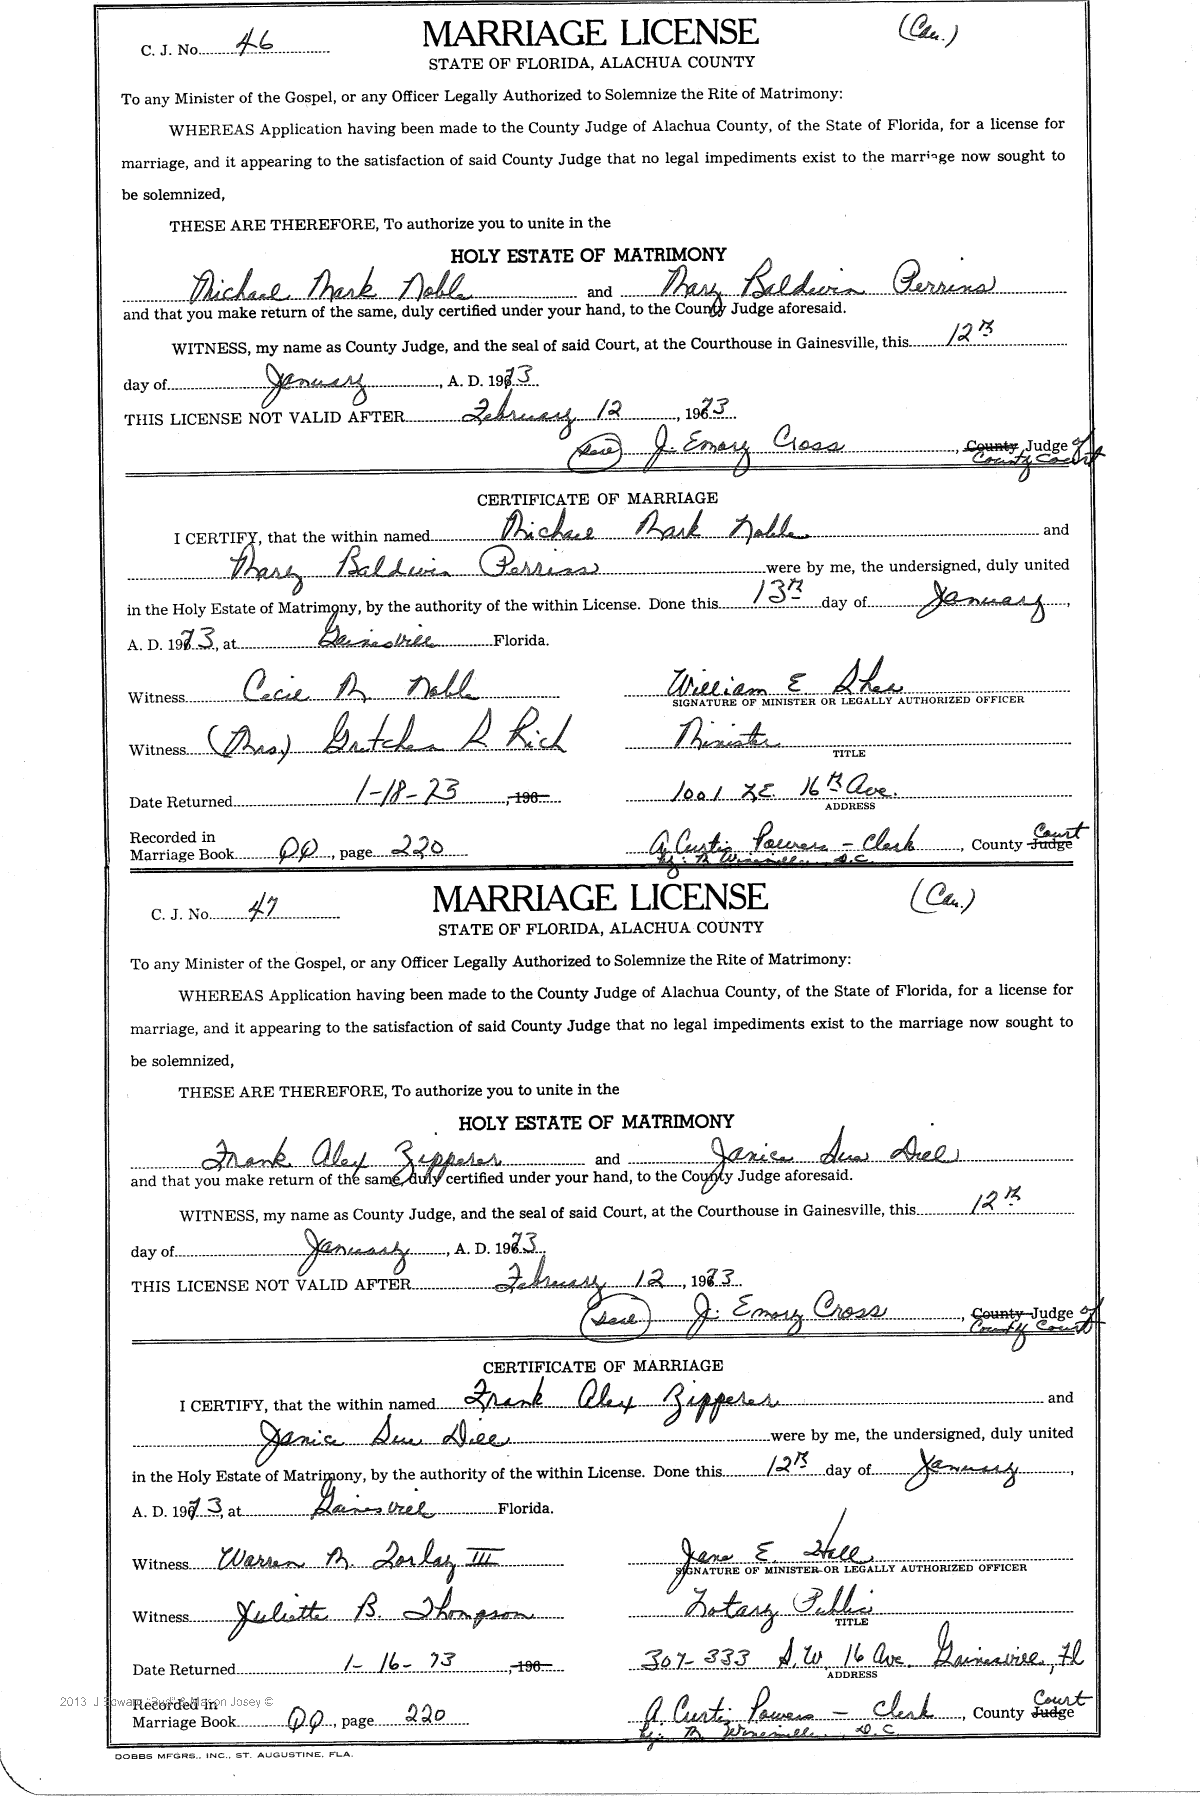 C. J. No. 46 MARRIAGE LICENSE (Cau.)
STATE OF FLORIDA, ALACHUA COUNTY
To any Minister of the Gospel, or any Officer Legally Authorized to Solemnize the Rite of Matrimony:
WHEREAS Application having been made to the County Judge of Alachua County, of the State of Florida, for a license for
marriage, and it appearing to the satisfaction of said County Judge that no legal impediments exist to the marriage now sought to
be solemnized,
THESE ARE THEREFORE, To authorize you to unite in the
HOLY ESTATE OF MATRIMONY
Michael Mark Noble and Mary Baldwin Perrins
and that you make return of the same, duly certified under your hand, to the County Judge aforesaid.
WITNESS, my name as County Judge, and the seal of said Court, at the Courthouse in Gainesville, this 12th
day of January, A. D. 1973
THIS LICENSE NOT VALID AFTER February 12, 1973
(Seal) J. Emory Cross, County Judge of
County Court
CERTIFICATE OF MARRIAGE
I CERTIFY, that the within named Michael Mark Noble and
Mary Baldwin Perrins were by me, the undersigned, duly united
in the Holy Estate of Matrimony, by the authority of the within License. Done this 13th day of January,
A. D. 1973, at Gainesville Florida.
Witness Cecil M Noble William E Shea
SIGNATURE OF MINISTER OR LEGALLY AUTHORIZED OFFICER
Witness (Mrs.) Gretchen R Rich Minister
TITLE
Date Returned 1-18-73, 196 1001 N.E. 16th Ave.
ADDRESS
Recorded in Court
Marriage Book QQ, page 220 A Curtis Powers - Clerk, County Judge
By: D.C.
C. J. No. 47 MARRIAGE LICENSE (Cau.)
STATE OF FLORIDA, ALACHUA COUNTY
To any Minister of the Gospel, or any Officer Legally Authorized to Solemnize the Rite of Matrimony:
WHEREAS Application having been made to the County Judge of Alachua County, of the State of Florida, for a license for
marriage, and it appearing to the satisfaction of said County Judge that no legal impediments exist to the marriage now sought to
be solemnized,
THESE ARE THEREFORE, To authorize you to unite in the
HOLY ESTATE OF MATRIMONY
Frank Alex Zipperer and Janice Sue Diel
and that you make return of the same, duly certified under your hand, to the County Judge aforesaid.
WITNESS, my name as County Judge, and the seal of said Court, at the Courthouse in Gainesville, this 12th
day of January, A. D. 1973
THIS LICENSE NOT VALID AFTER February 12, 1973
(Seal) J. Emory Cross, County Judge of
County Court
CERTIFICATE OF MARRIAGE
I CERTIFY, that the within named Frank Alex Zipperer and
Janice Sue Diel were by me, the undersigned, duly united
in the Holy Estate of Matrimony, by the authority of the within License. Done this 12th day of January,
A. D. 1973, at Gainesville Florida.
Witness Warren M. III Jane E. Hall
SIGNATURE OF MINISTER OR LEGALLY AUTHORIZED OFFICER
Witness Juliette B. Thompson Notary Public
TITLE
Date Returned 1-16-73, 196 307-333 S.W. 16 Ave. Gainesville, Fl
ADDRESS
2013 J Edward "Bud" & Marion Josey ©
Recorded in Court
Marriage Book QQ, page 220 A Curtis Powers - Clerk, County Judge
By: D.C.
DOBBS MFGRS., INC., ST. AUGUSTINE, FLA.